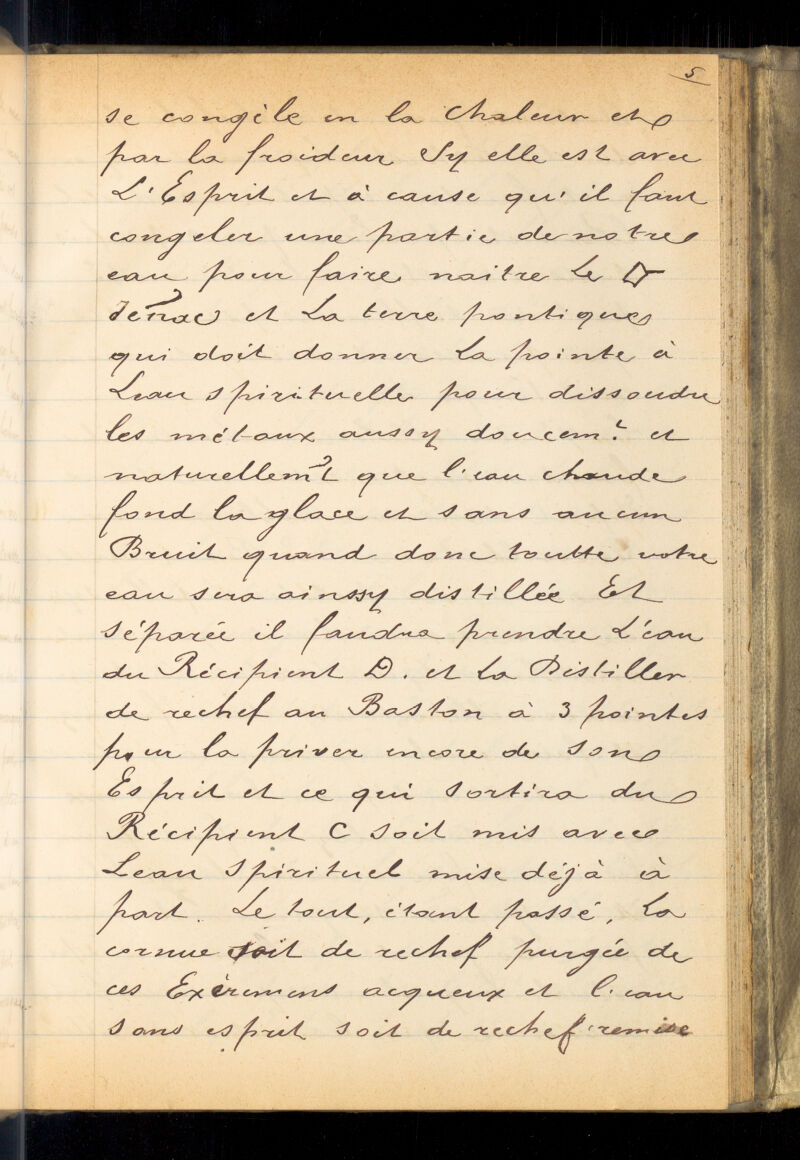 5
se congèle en la Chaleur et
par la froideur Sy elle est avec
L'Esprit et à cause qu'il faut
congeler une partie de notre
eau pour faire naitre Le
et La terre pontique
qui doit donner La pointe à
Leau spirituelle pour dissoudre
les métaux aussy doucemt et
naturellemt que l'eau chaude
fond la glace et sans aucun
Bruit quand donc toutte votre
eau sera ainssy distillée Et
séparée il faudra prendre L'eau
du Récipient D. et La Distiller
de rechef au Baston à 3 pointes
pour la priver encore de son
Esprit et ce qui Sortira du
Récipient C soit mis avec
Leau Spirituel mise déjà à
part. Le tout, étant passé, La
cornue soit de rechef purgée de
ces Exèremens acqueux et l'eau
sans esprit soit de rechef remise